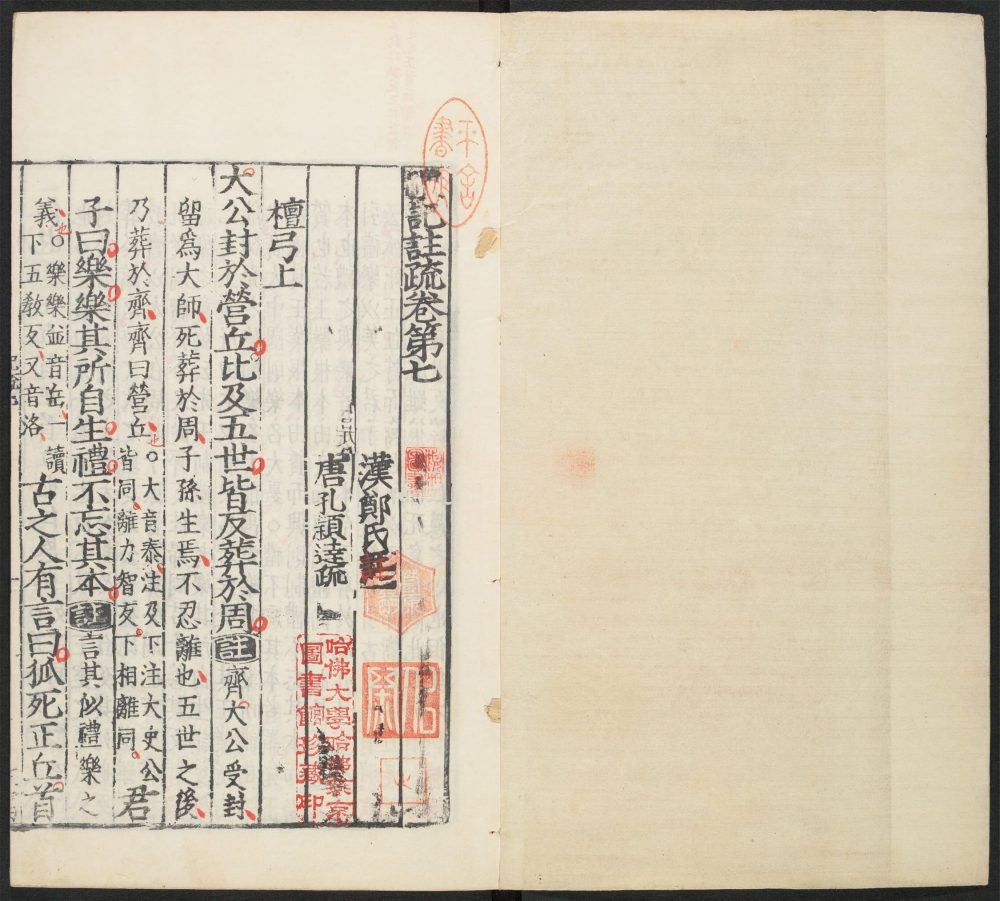 記註疏卷第七
漢鄭氏註
唐孔穎達疏
檀弓上
大公封於營丘比及五世皆反葬於周註齊大公受封
留為大師死葬於周子孫生焉不忍離也五世之後
乃葬於齊齊曰營丘也○大音泰注及下注大史公
皆同離力智反下相離同
君子曰樂樂其所自生禮不忘其本註言其似禮樂之
義也○樂樂並音岳一讀
下五敎反又音洛
古之人有言曰狐死正丘首
哈佛大學哈佛燕京
圖書館珍藏印